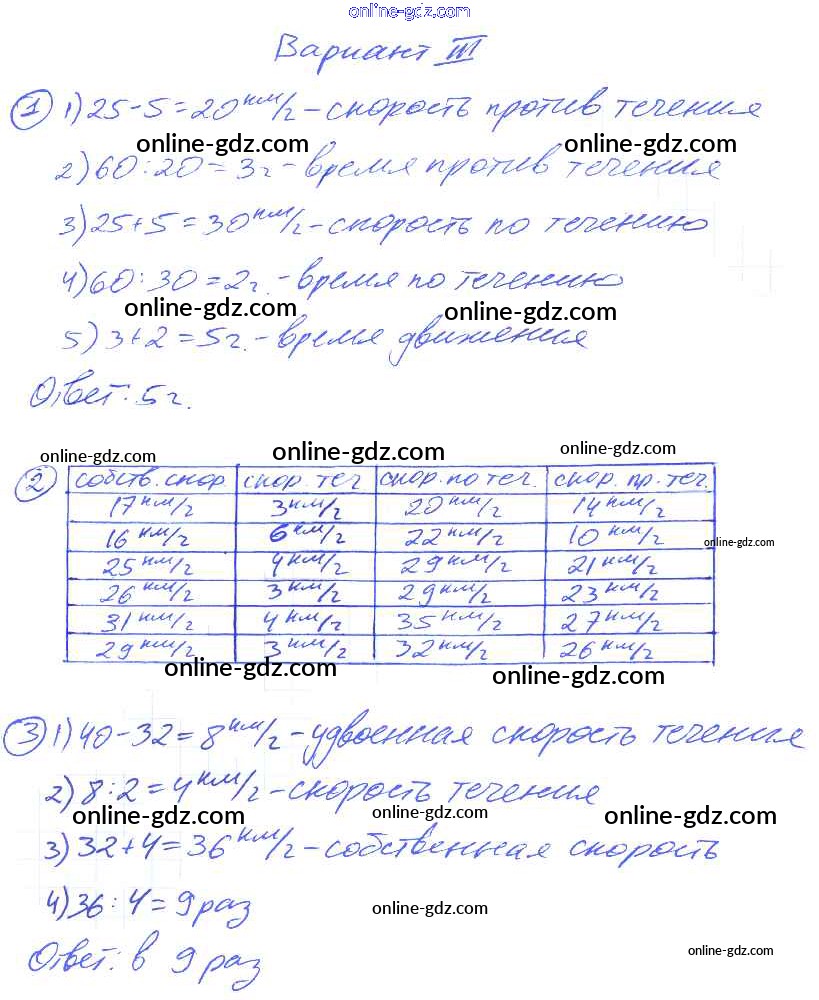 online-gdz.com
Вариант III
1 1) 25 - 5 = 20 км/г - скорость против течения
online-gdz.com online-gdz.com
2) 60 : 20 = 3г - время против течения
3) 25 + 5 = 30 км/г - скорость по течению
4) 60 : 30 = 2г. - время по течению
online-gdz.com online-gdz.com
5) 3 + 2 = 5г. - время движения
Ответ: 5г.
online-gdz.com online-gdz.com online-gdz.com
2 собств. скор. скор. теч скор. по теч. скор. пр. теч.
17 км/г 3 км/г 20 км/г 14 км/г
16 км/г 6 км/г 22 км/г 10 км/г
online-gdz.com
25 км/г 4 км/г 29 км/г 21 км/г
26 км/г 3 км/г 29 км/г 23 км/г
31 км/г 4 км/г 35 км/г 27 км/г
29 км/г 3 км/г 32 км/г 26 км/г
online-gdz.com online-gdz.com
3 1) 40 - 32 = 8 км/г - удвоенная скорость течения
2) 8 : 2 = 4 км/г - скорость течения
online-gdz.com online-gdz.com online-gdz.com
3) 32 + 4 = 36 км/г - собственная скорость
4) 36 : 4 = 9 раз
online-gdz.com
Ответ: в 9 раз
online-gdz.com